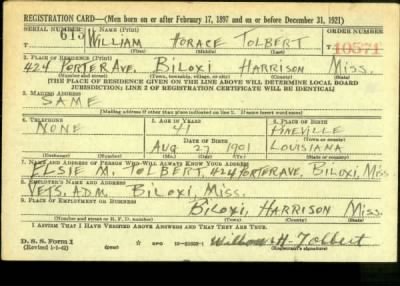 REGISTRATION CARD—(Men born on or after February 17, 1897 and on or before December 31, 1921)
SERIAL NUMBER 1. NAME (Print) ORDER NUMBER
615 WILLIAM HORACE TOLBERT 10571
(First) (Middle) (Last)
2. PLACE OF RESIDENCE (Print)
424 PORTER AVE. BILOXI HARRISON MISS.
(Number and street) (Town, township, village, or city) (County) (State)
[THE PLACE OF RESIDENCE GIVEN ON THE LINE ABOVE WILL DETERMINE LOCAL BOARD
JURISDICTION; LINE 2 OF REGISTRATION CERTIFICATE WILL BE IDENTICAL]
3. MAILING ADDRESS
SAME
[Mailing address if other than place indicated on line 2. If same insert word same]
4. TELEPHONE 5. AGE IN YEARS 6. PLACE OF BIRTH
NONE 41 PINEVILLE
DATE OF BIRTH (Town or county)
AUG 27 1901 LOUISIANA
(Exchange) (Number) (Mo.) (Day) (Yr.) (State or country)
7. NAME AND ADDRESS OF PERSON WHO WILL ALWAYS KNOW YOUR ADDRESS
ELSIE M. TOLBERT, 424 PORTER AVE, BILOXI, MISS
8. EMPLOYER'S NAME AND ADDRESS
VETS. ADM. BILOXI, MISS.
9. PLACE OF EMPLOYMENT OR BUSINESS
BILOXI, HARRISON MISS.
(Number and street or R. F. D. number) (Town) (County) (State)
I AFFIRM THAT I HAVE VERIFIED ABOVE ANSWERS AND THAT THEY ARE TRUE.
D. S. S. Form 1
(Revised 1-1-42) (over) GPO
William H. Tolbert
(Registrant's signature)